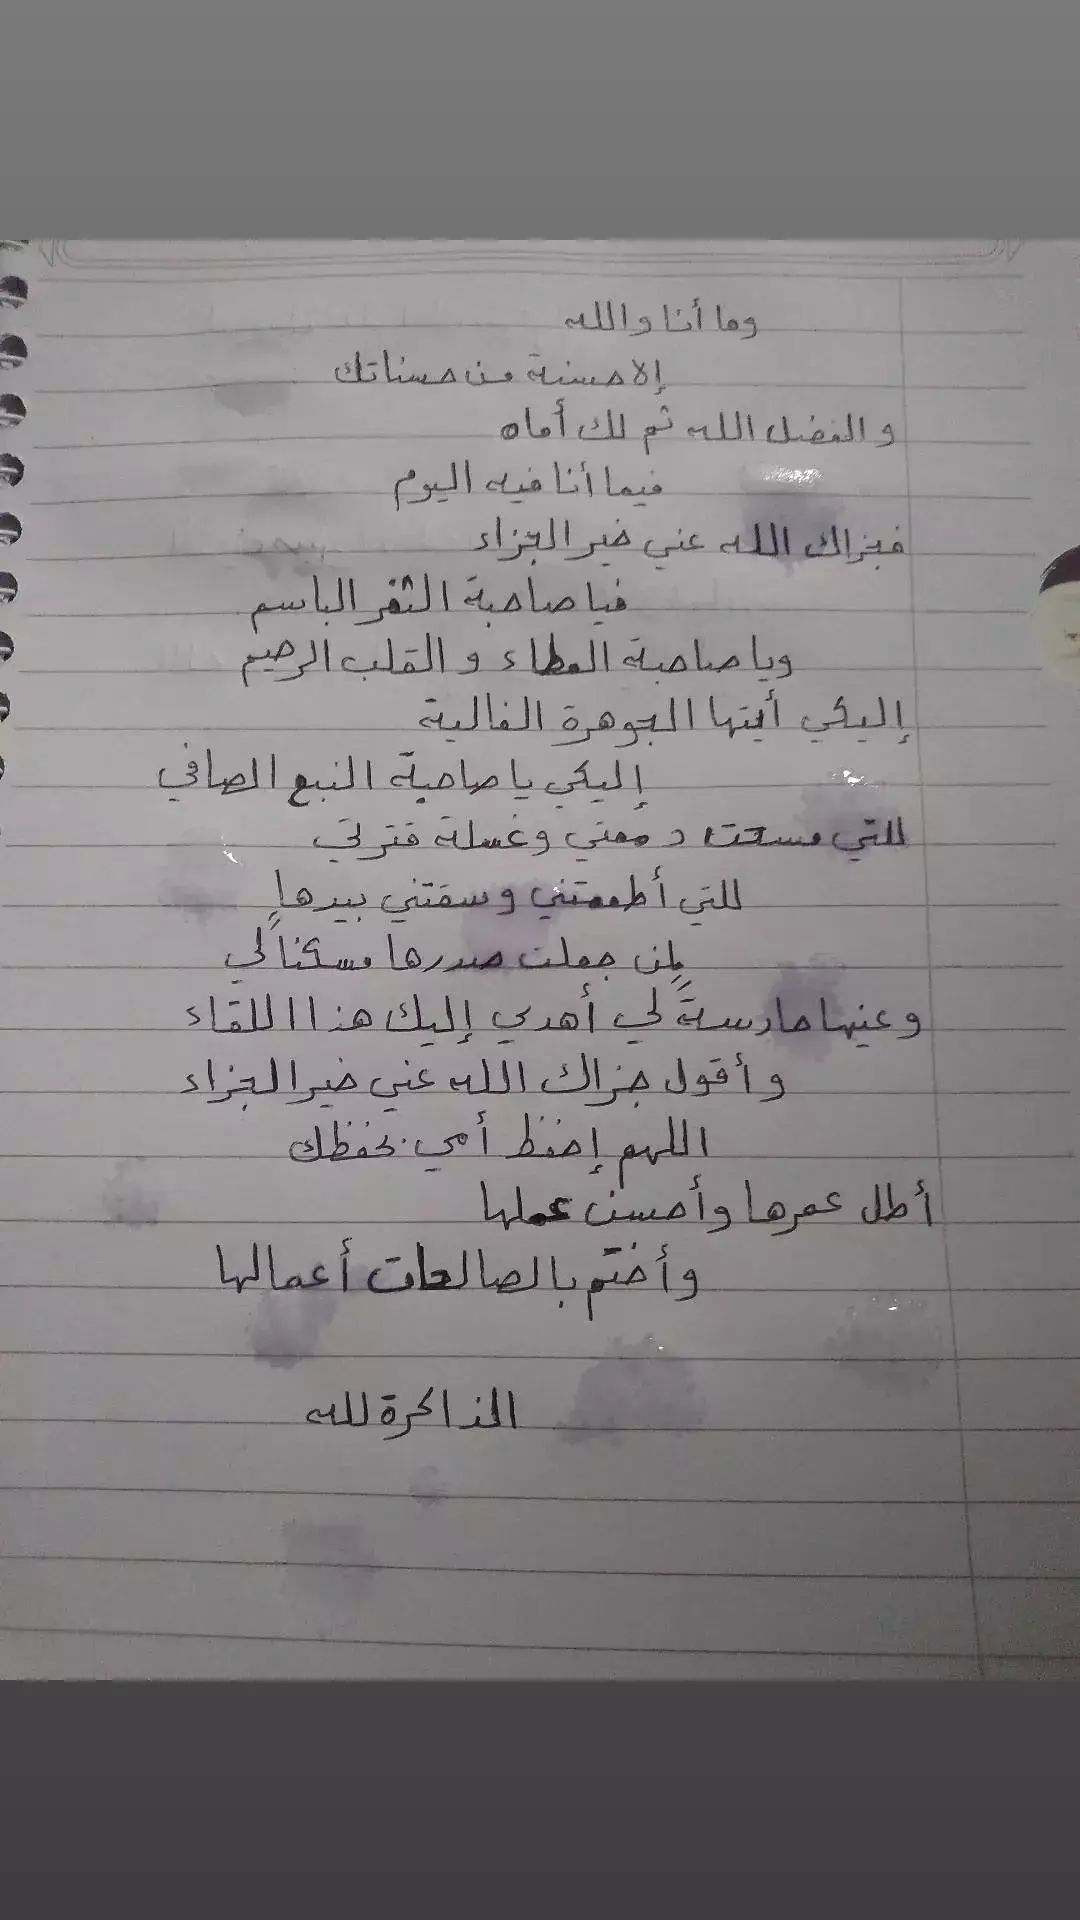 وما أنا والله
إلا حسنة من حسناتك
والفضل الله ثم لك أماه
فيما أنا فيه اليوم
فجزاك الله عني خير الجزاء
فيا صاحبة الثغر الباسم
ويا صاحبة العطاء والقلب الرحيم
إليكي أيتها الجوهرة الغالية
إليكي يا صاحبة النبع الصافي
للتي مسحت دمعتي وغسلة قترتي
للتي أطعمتني وسقتني بيدها
لمن جعلت صدرها مسكناً لي
وعنيها حارسةً لي أهدي إليك هذا اللقاء
وأقول جزاك الله عني خير الجزاء
اللهم إحفظ أمي بحفظك
أطل عمرها وأحسن عملها
وأختم بالصالحات أعمالها
الذاكرة لله